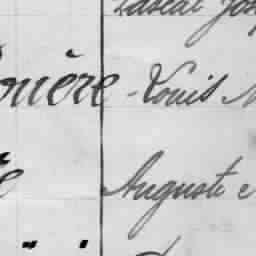 Pascal Jos
ouère Louis M
e Auguste